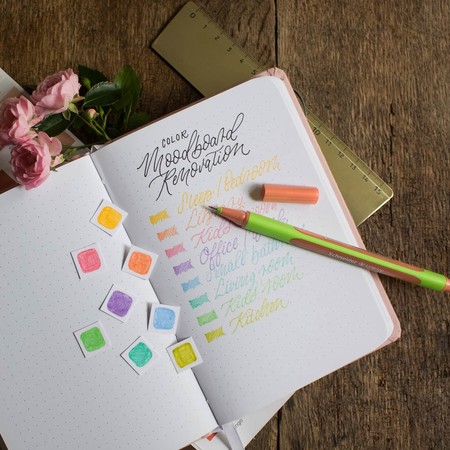 COLOR
Moodboard
Renovation
Sleep / bedroom
Library
Kid's room
Office /
Small bath
Living room
Kid's room
Kitchen